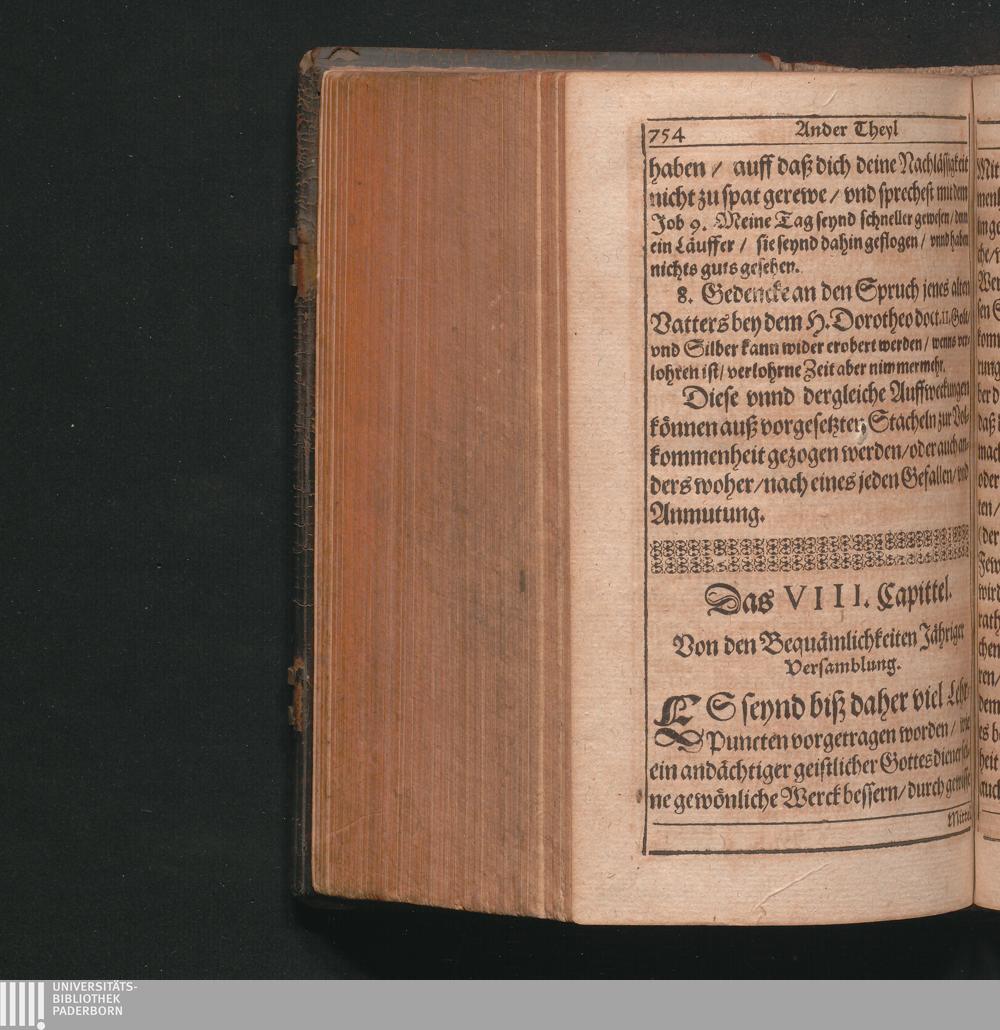 754 Ander Theyl
haben / auff daß dich deine Nachlässigkeit
nicht zu spat gerewe / vnd sprechest mit dem
Job 9. Meine Tag seynd schneller gewesen / dann
ein Läuffer / sie seynd dahin geflogen / vnnd haben
nichts guts gesehen.
8. Gedencke an den Spruch jenes alten
Vatters bey dem H. Dorotheo doct. 11. Golt /
vnd Silber kann wider erobert werden / wenns ver-
lohren ist / verlohrne Zeit aber nimmermehr.
Diese vnnd dergleiche Auffweckungen
können auß vorgesetzten Stacheln zur Vol-
kommenheit gezogen werden / oder auch an-
ders woher / nach eines jeden Gefallen / vnd
Anmutung.
Das VIII. Capittel.
Von den Bequämlichkeiten Jähriger
Versamblung.
ES seynd biß daher viel Lehr-
Puncten vorgetragen worden / wie
ein andächtiger geistlicher Gottesdiener sei-
ne gewönliche Werck bessern / durch gewisse
Mittel
UNIVERSITÄTS-
BIBLIOTHEK
PADERBORN